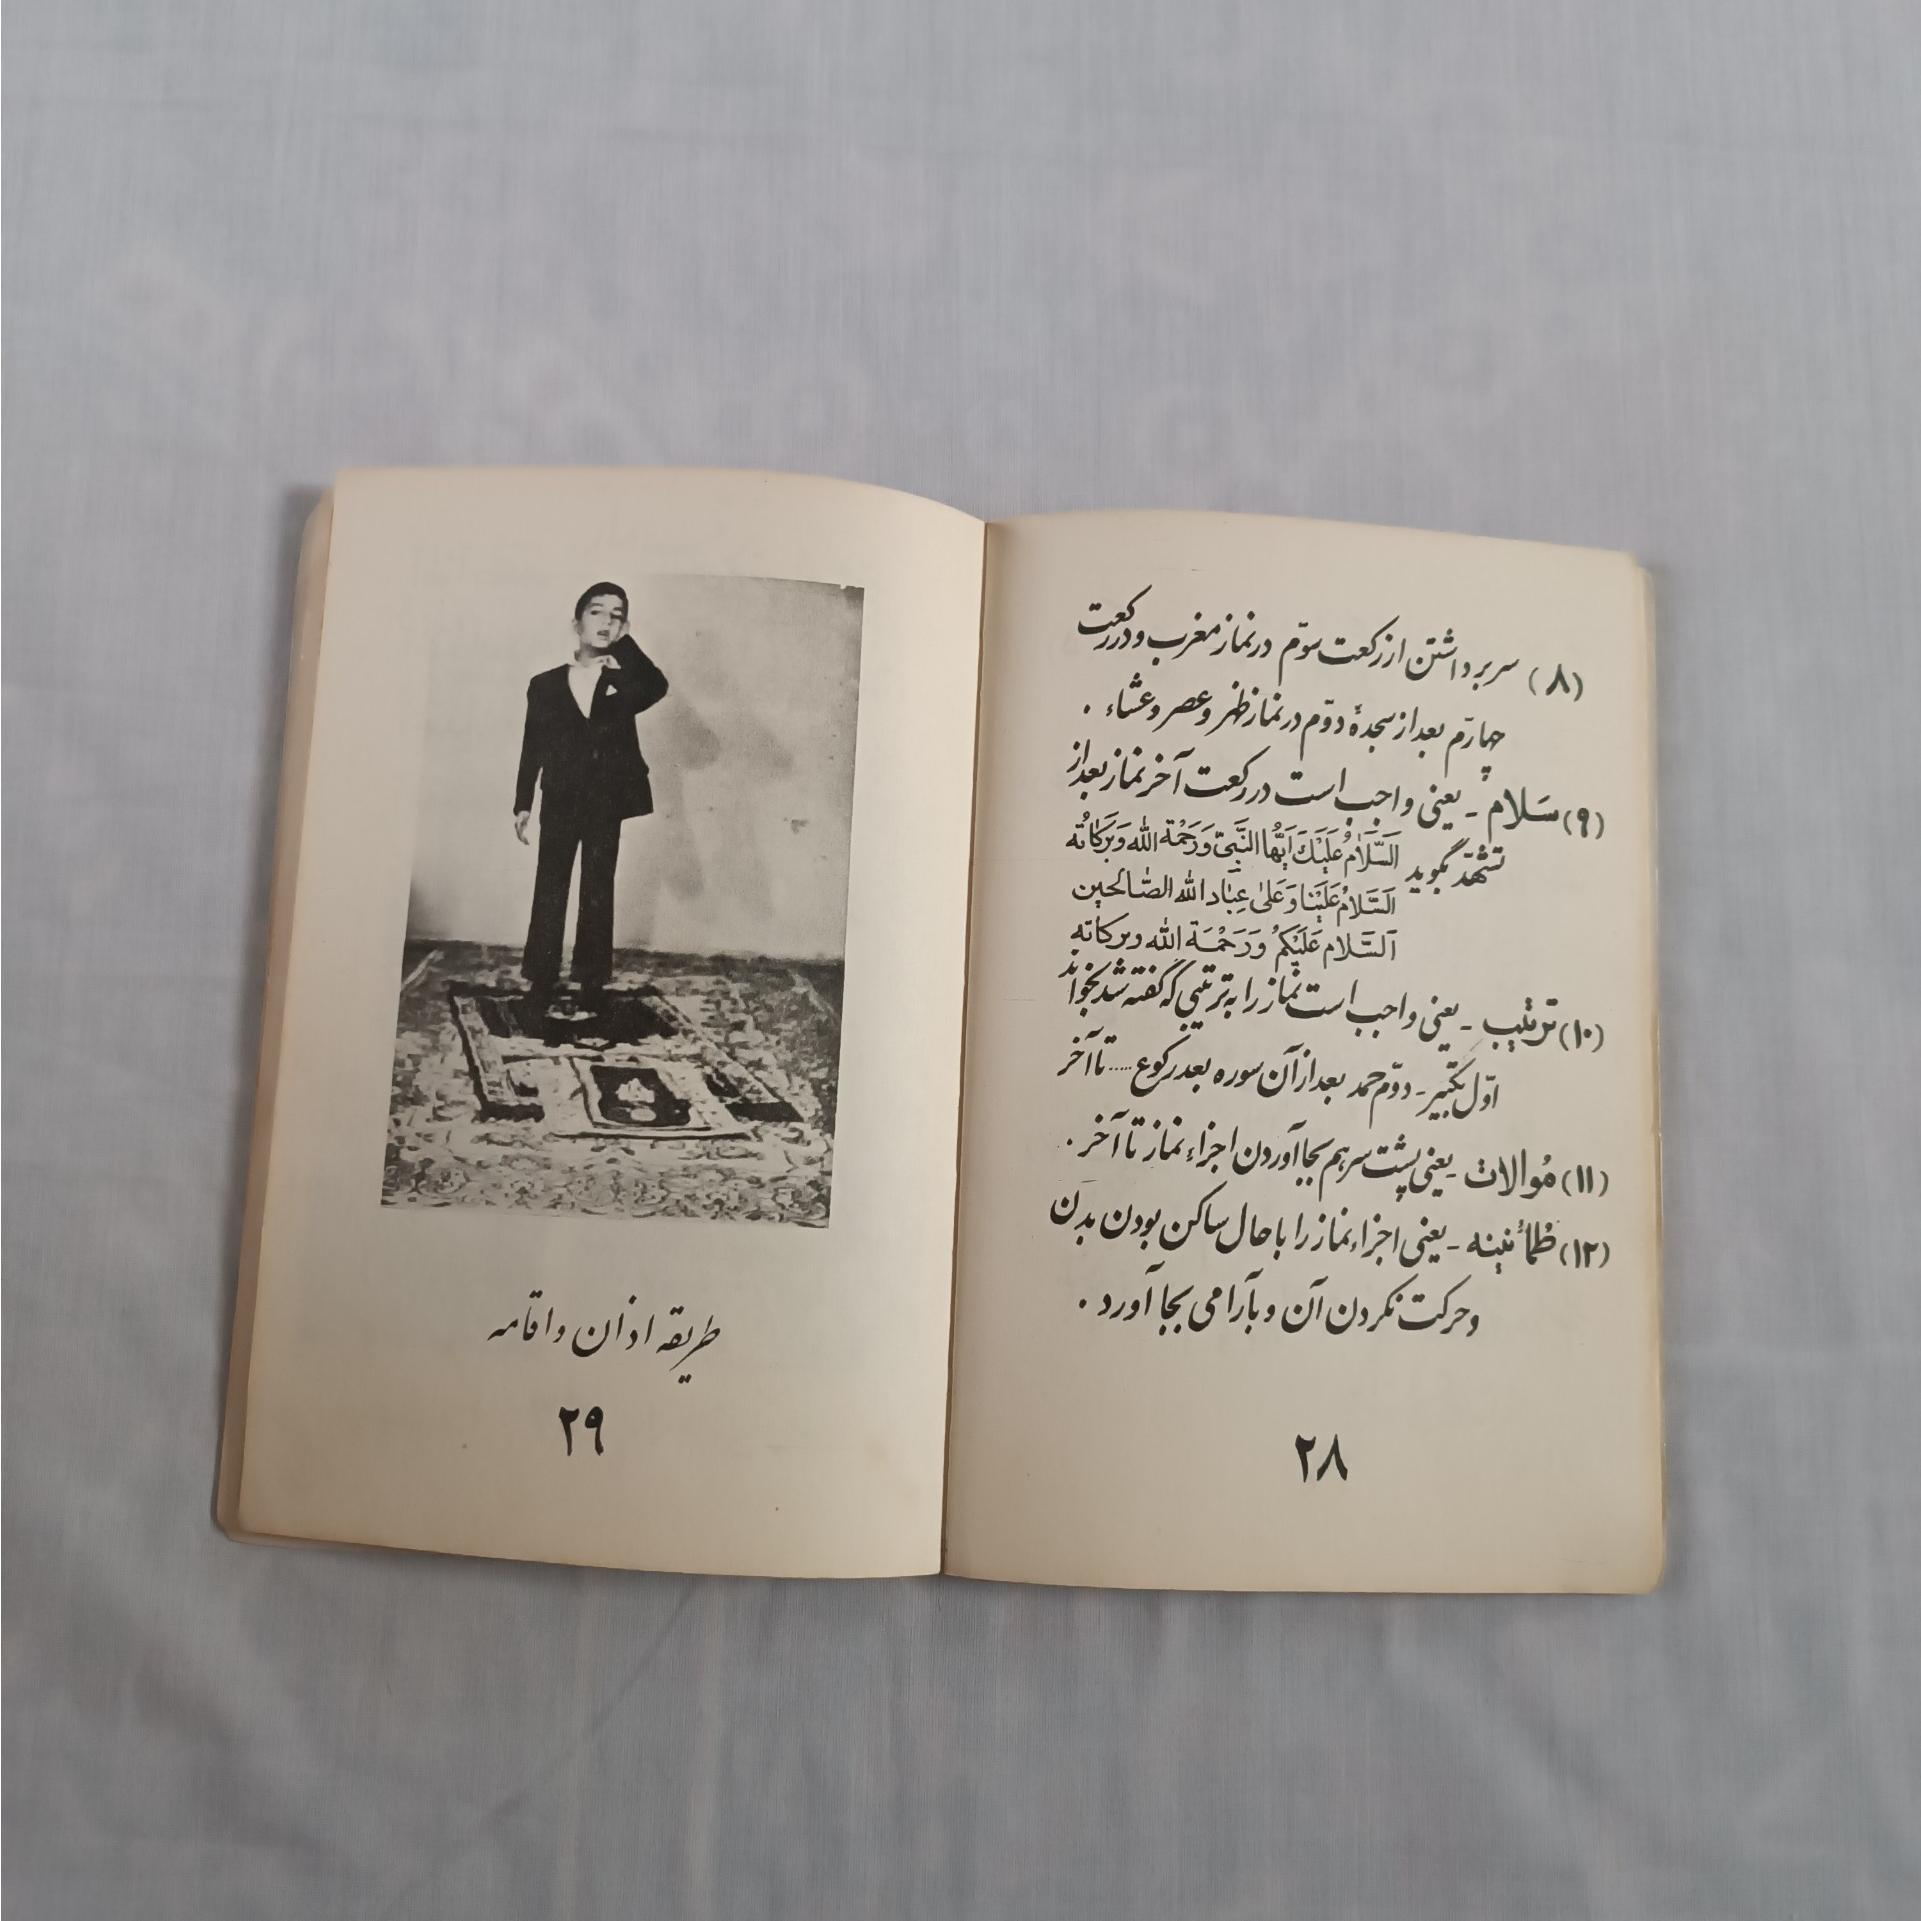 (۸) سر برداشتن از رکعت سوّم در نماز مغرب و در رکعت
چهارم بعد از سجدهٔ دوّم در نماز ظهر و عصر و عشاء .
(۹) سَلام - یعنی واجب است در رکعت آخر نماز بعد از
تشهّد بگوید اَلسَّلامُ عَلَیْكَ اَیُّهَا النَّبِیُّ وَرَحْمَة الله وَبَرَکاتُه
اَلسَّلامُ عَلَیْنا وَ عَلیٰ عِبٰادِ الله الصّالحین
اَلسَّلام عَلَیْکُمْ وَ رَحْمَة الله وبرکاته
(۱۰) ترتیب - یعنی واجب است نماز را به ترتیبی که گفته شد بخواند
اوّل تکبیر - دوّم حمد بعد از آن سوره بعد رکوع ..... تا آخر
(۱۱) مُوالات - یعنی پشت سرهم بجا آوردن اجزاء نماز تا آخر .
(۱۲) طُمأنینه - یعنی اجزاء نماز را با حال ساکن بودن بدن
و حرکت نکردن آن و بآرامی بجا آورد .
۲۸
طریقه اذان و اقامه
۲۹